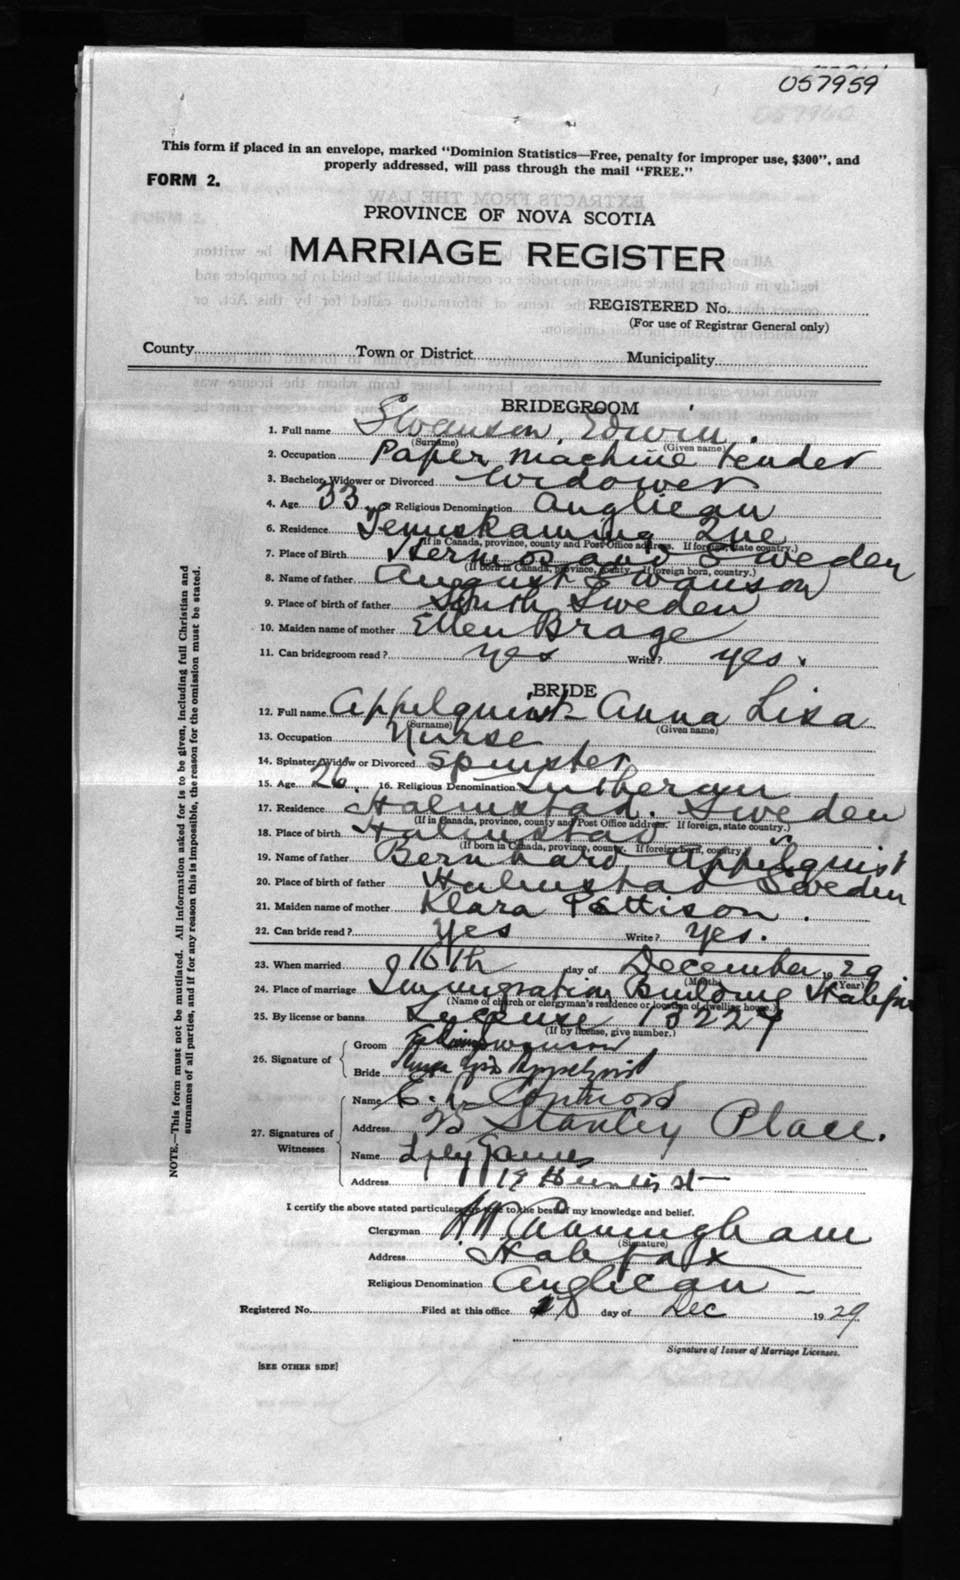 057959
This form if placed in an envelope, marked "Dominion Statistics—Free, penalty for improper use, $300", and
properly addressed, will pass through the mail "FREE."
FORM 2.
PROVINCE OF NOVA SCOTIA
MARRIAGE REGISTER
REGISTERED No.
(For use of Registrar General only)
County Town or District Municipality
BRIDEGROOM
1. Full name Swanson, Edwin.
(Surname) (Given name)
2. Occupation Paper machine tender
3. Bachelor, Widower or Divorced Widower
4. Age 33 Religious Denomination Anglican
6. Residence Temiskaming Que
(If in Canada, province, county and Post Office address. If foreign, state country.)
7. Place of Birth Sweden
(If born in Canada, province, county. If foreign born, country.)
8. Name of father August Swanson
9. Place of birth of father South Sweden
10. Maiden name of mother Ellen Brage
11. Can bridegroom read? yes Write? yes.
BRIDE
12. Full name Appelquist Anna Lisa
(Surname) (Given name)
13. Occupation Nurse
14. Spinster, Widow or Divorced Spinster
15. Age 26. 16. Religious Denomination Lutheran
17. Residence Halmstad. Sweden
(If in Canada, province, county and Post Office address. If foreign, state country.)
18. Place of birth Halmstad "
(If born in Canada, province, county. If foreign born, country.)
19. Name of father Bernhard Appelquist
20. Place of birth of father Halmstad Sweden
21. Maiden name of mother Klara Pettison.
22. Can bride read? Yes Write? Yes.
23. When married 16th day of December 1929
(Month) (Year)
24. Place of marriage Immigration Building Halifax
(Name of church or clergyman's residence or location of dwelling house.)
25. By license or banns License
(If by license, give number.)
26. Signature of
Groom Edwin Swanson
Bride Anna Lisa Appelquist
27. Signatures of
Witnesses
Name E. L.
Address Stanley Place.
Name Lily James
Address St
I certify the above stated particulars are true to the best of my knowledge and belief.
Clergyman Cunningham
(Signature)
Address Halifax
Religious Denomination Anglican
Registered No. Filed at this office 18 day of Dec 1929
Signature of Issuer of Marriage Licenses.
[SEE OTHER SIDE]
NOTE.—This form must not be mutilated. All information asked for is to be given, including full Christian and
surnames of all parties, and if for any reason this is impossible, the reason for the omission must be stated.